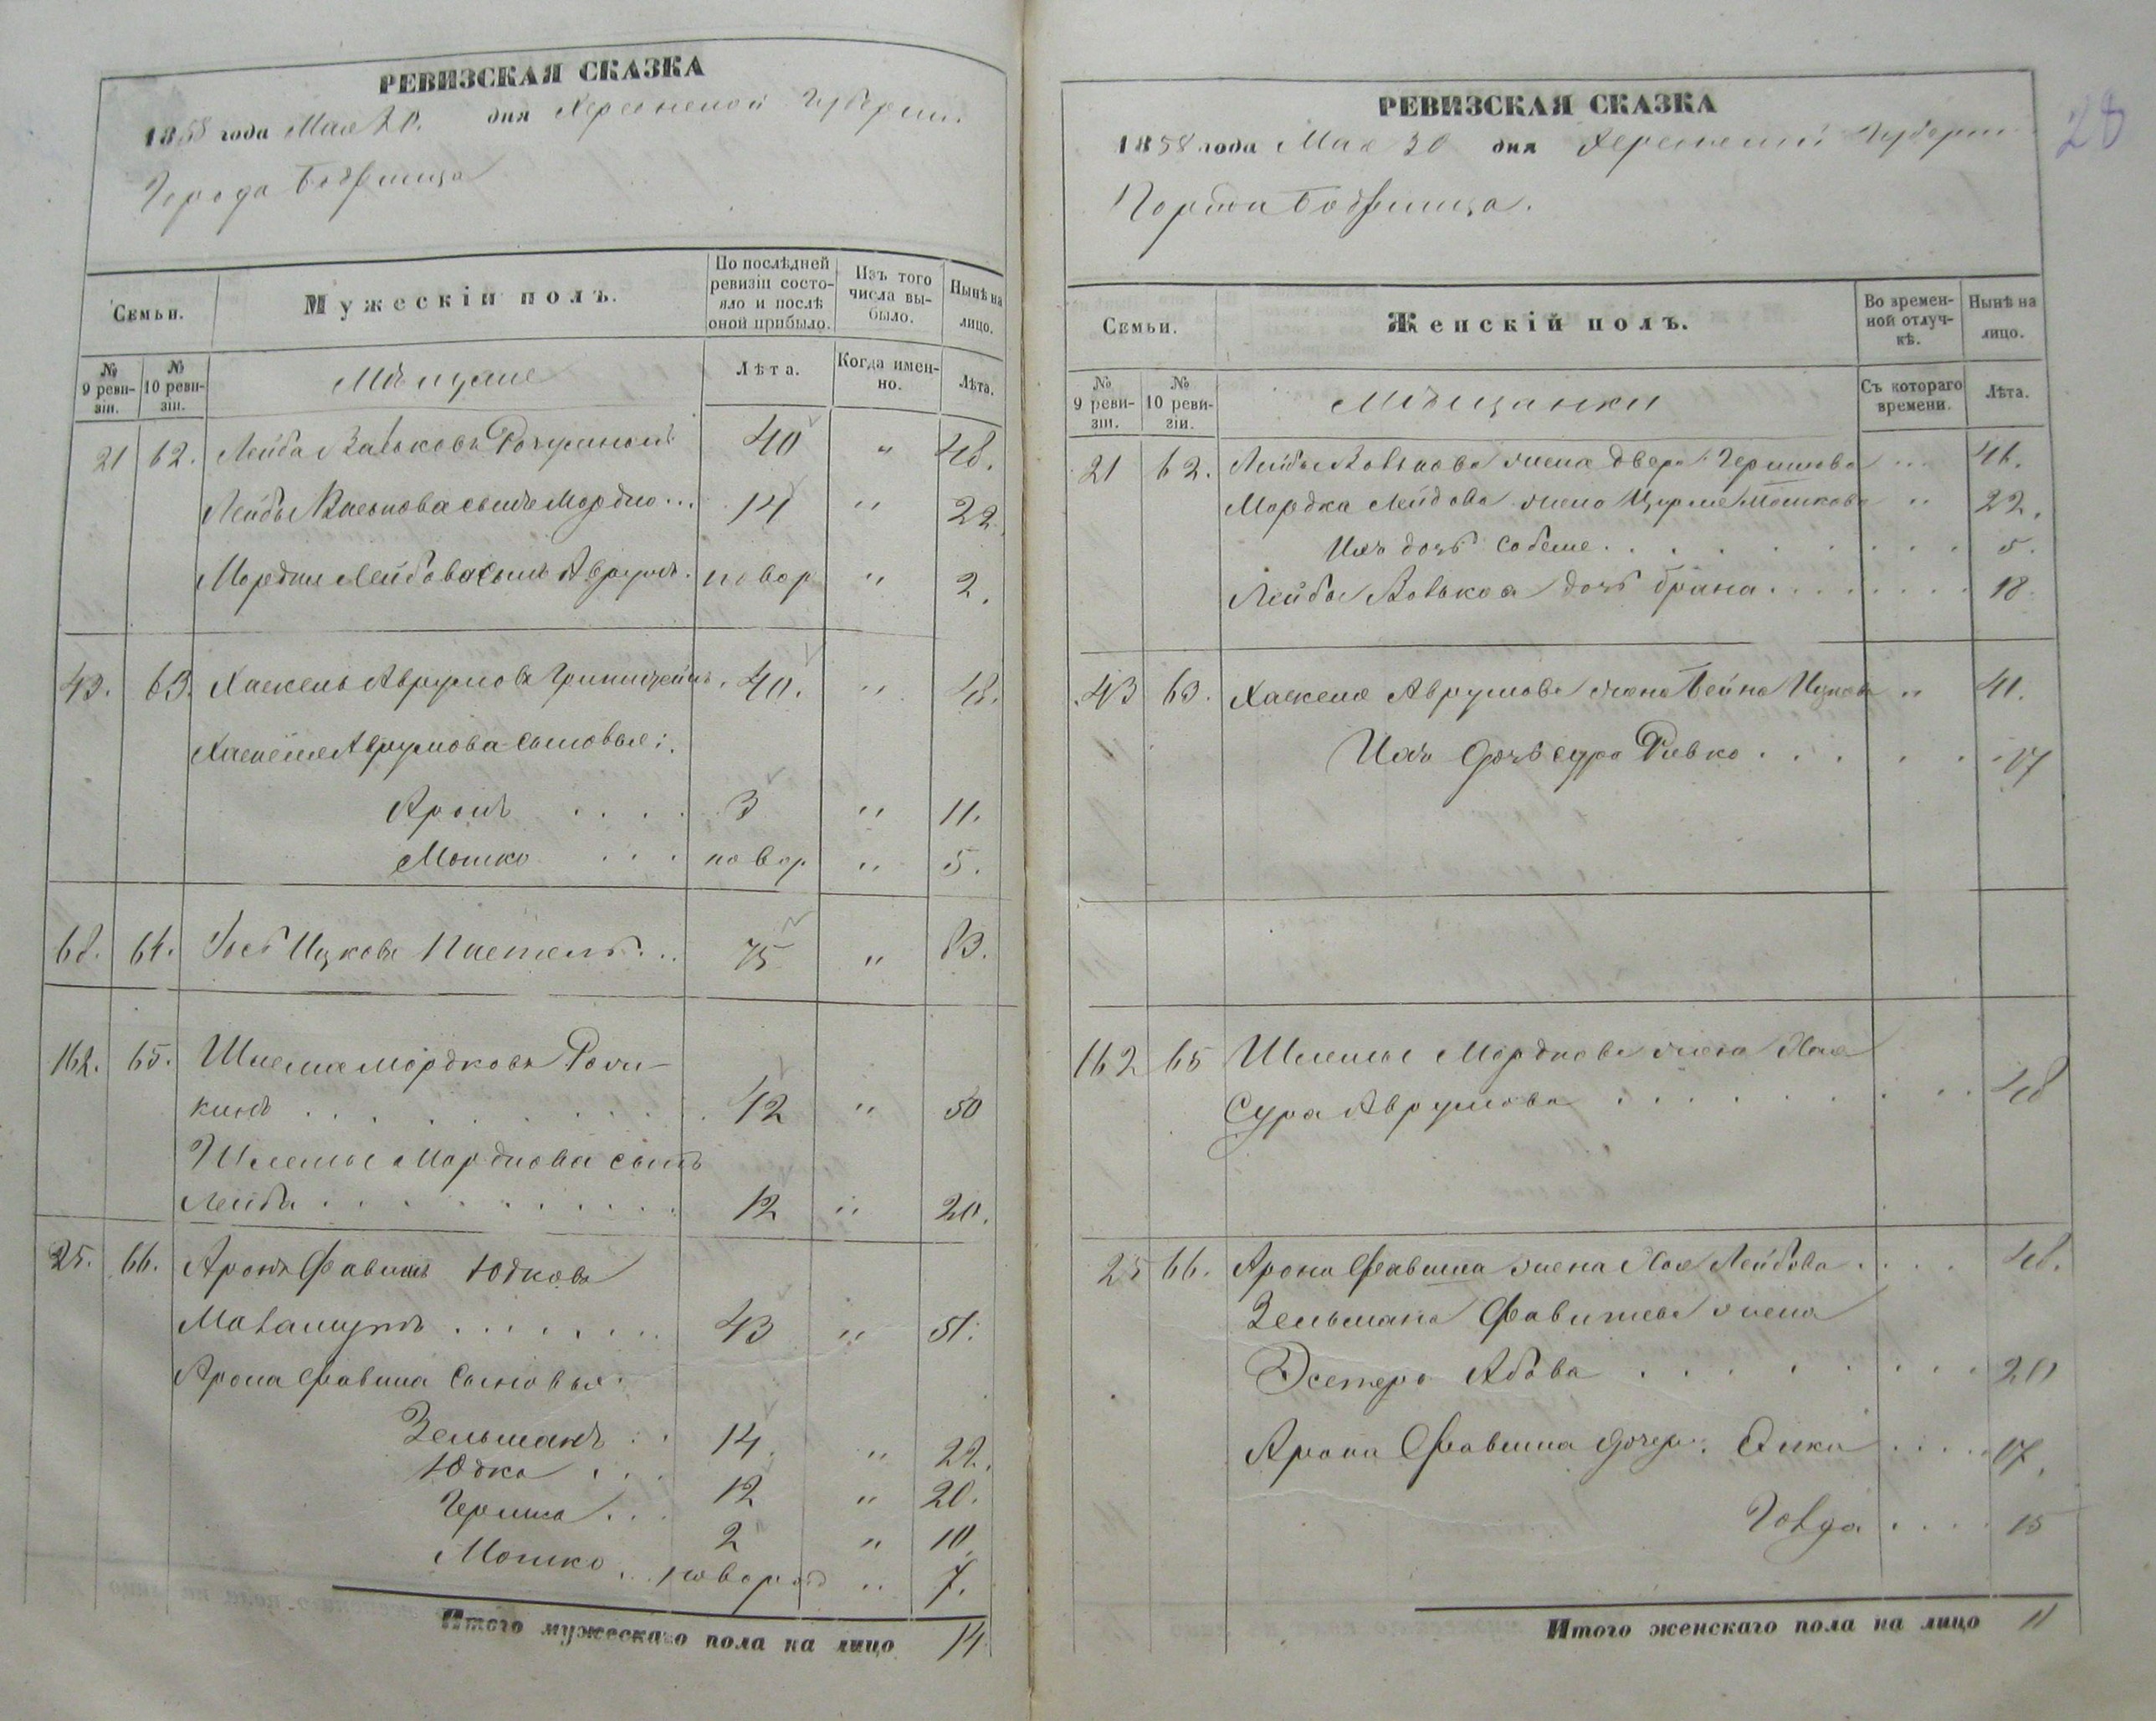 РЕВИЗСКАЯ СКАЗКА
1858 года Мая 20. дня Херсонской Губернии.
Города Бобринца
Семьи.
Мужескій полъ.
По послѣдней ревизіи состояло и послѣ оной прибыло.
Изъ того числа выбыло.
Нынѣ на лицо.
№ 9 ревизіи.
№ 10 ревизіи.
Мѣщане
Лѣта.
Когда именно.
Лѣта.
21 62. Лейба Вольковъ 40 " 48.
Лейбы Волькова сынъ Мордко ... 14 " 22.
Мордки Лейбова сынъ Аврумъ. новор " 2.
43. 63. Хаскель Аврумовъ 40. " 48.
Хаскеля Аврумова сыновья:
Аронъ . . . . 3 " 11.
Мошко . . . новор " 5.
68. 64. Іось Ицковъ Пастель. .. 75 " 83.
162. 65. Шлема Мордковъ
кинъ . . . . . . . 42 " 50
Шлемы Мордкова сынъ
Лейба . . . . . . . 12 " 20.
25. 66. Аронъ Фавишъ Юдковъ
. . . . . . . 43 " 51.
Арона Фавиша сыновья:
Зельманъ . . 14. " 22.
Юдко . . . 12 " 20.
Гершко . . . 2 " 10
Мошко . . новорож " 7.
Итого мужескаго пола на лицо 14
28
РЕВИЗСКАЯ СКАЗКА
1858 года Мая 30 дня Херсонской Губерніи
Города Бобринца.
Семьи.
Женскій полъ.
Во временной отлучкѣ.
Нынѣ на лицо.
№ 9 ревизіи.
№ 10 ревизіи.
Мѣщанки
Съ котораго времени.
Лѣта.
21 62. Лейбы Волькова жена Двера Гершкова ... 46.
Мордка Лейбова жена Мошкова " 22.
Ихъ дочь . . . . . . . 5.
Лейбы Волькова дочь Брана . . . . . . . 18.
43 63. Хаскеля Аврумова жена Бейла Ицкова " 41.
Ихъ дочь Сура Ривка . . . . . . 17
162 65 Шлемы Мордкова жена Хая
Сура Аврумова . . . . . . . 48
25 66. Арона Фавиша жена Хая Лейбова . . . . 48.
Зельмана Фавишева жена
Эстера Абова . . . . . . . 20
Арона Фавиша дочери: Элка . . . . 17.
Голда . . . . 15
Итого женскаго пола на лицо 11